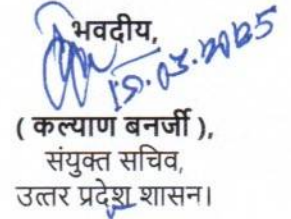 भवदीय,
15.03.2025
( कल्याण बनर्जी ),
संयुक्त सचिव,
उत्तर प्रदेश शासन।